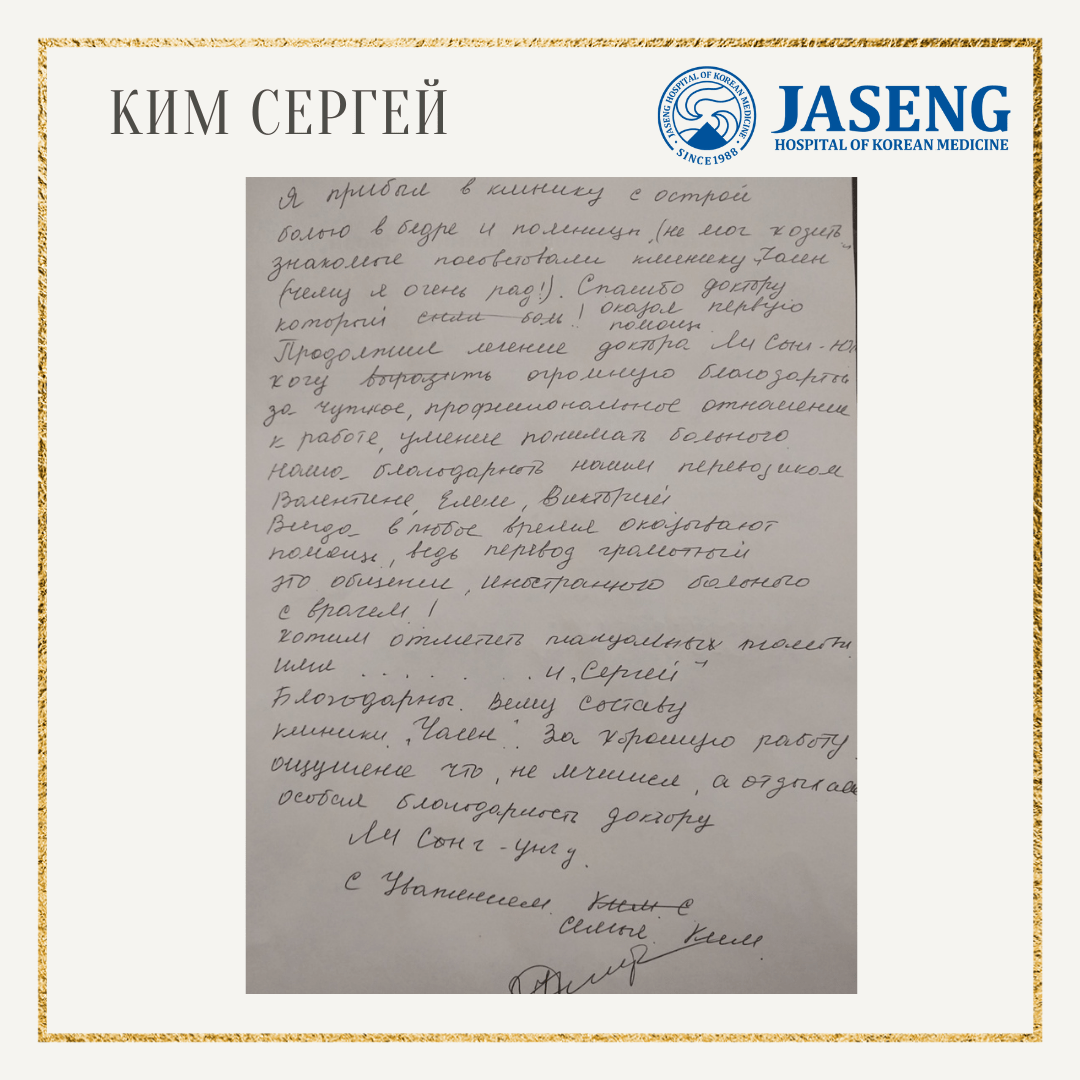 КИМ СЕРГЕЙ
JASENG HOSPITAL OF KOREAN MEDICINE
SINCE 1988
JASENG
HOSPITAL OF KOREAN MEDICINE
Я прибыл в клинику с острой
болью в бедре и пояснице, (не мог ходить
знакомые посоветовали клинику „Часен“
(чему я очень рад!). Спасибо доктору
который снял боль! оказал первую
помощь.
Продолжил лечение доктора Ли Сонг-
хочу выразить огромную благодарность
за чуткое, профессиональное отношение
к работе, умение понимать больного
наша благодарность нашим переводчикам
Валентине, Елене, Виктории
Всегда в любое время оказывают
помощь, ведь перевод грамотный
это общение, иностранного больного
с врачем!
хотим отметить мануальных
имя . . . . . . и „Сергей“
Благодарны. Всему составу
клиники „Часен“. За хорошую работу
ощущение что, не лечимся, а отдыхаем
особая благодарность доктору
Ли Сонг-унгу.
С Уважением Ким С
семья Ким